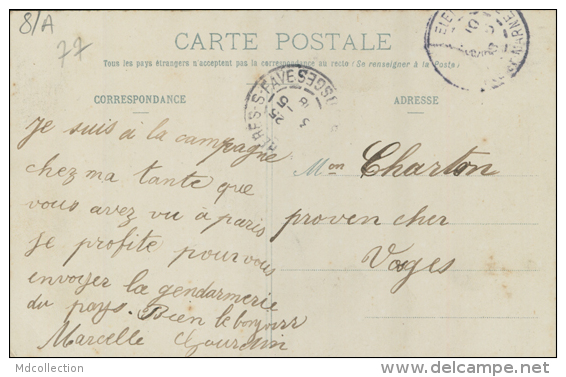 8/A
77
CARTE POSTALE
Tous les pays étrangers n'acceptent pas la correspondance au recto (Se renseigner à la Poste)
CORRESPONDANCE
ADRESSE
Je suis à la campagne
chez ma tante que
vous avez vu à paris
je profite pour vous
envoyer la gendarmerie
du pays. Bien le bonjoirr
Marcelle
Mon Charton
provencher
Voges
Mdcollection
www.delcampe.net